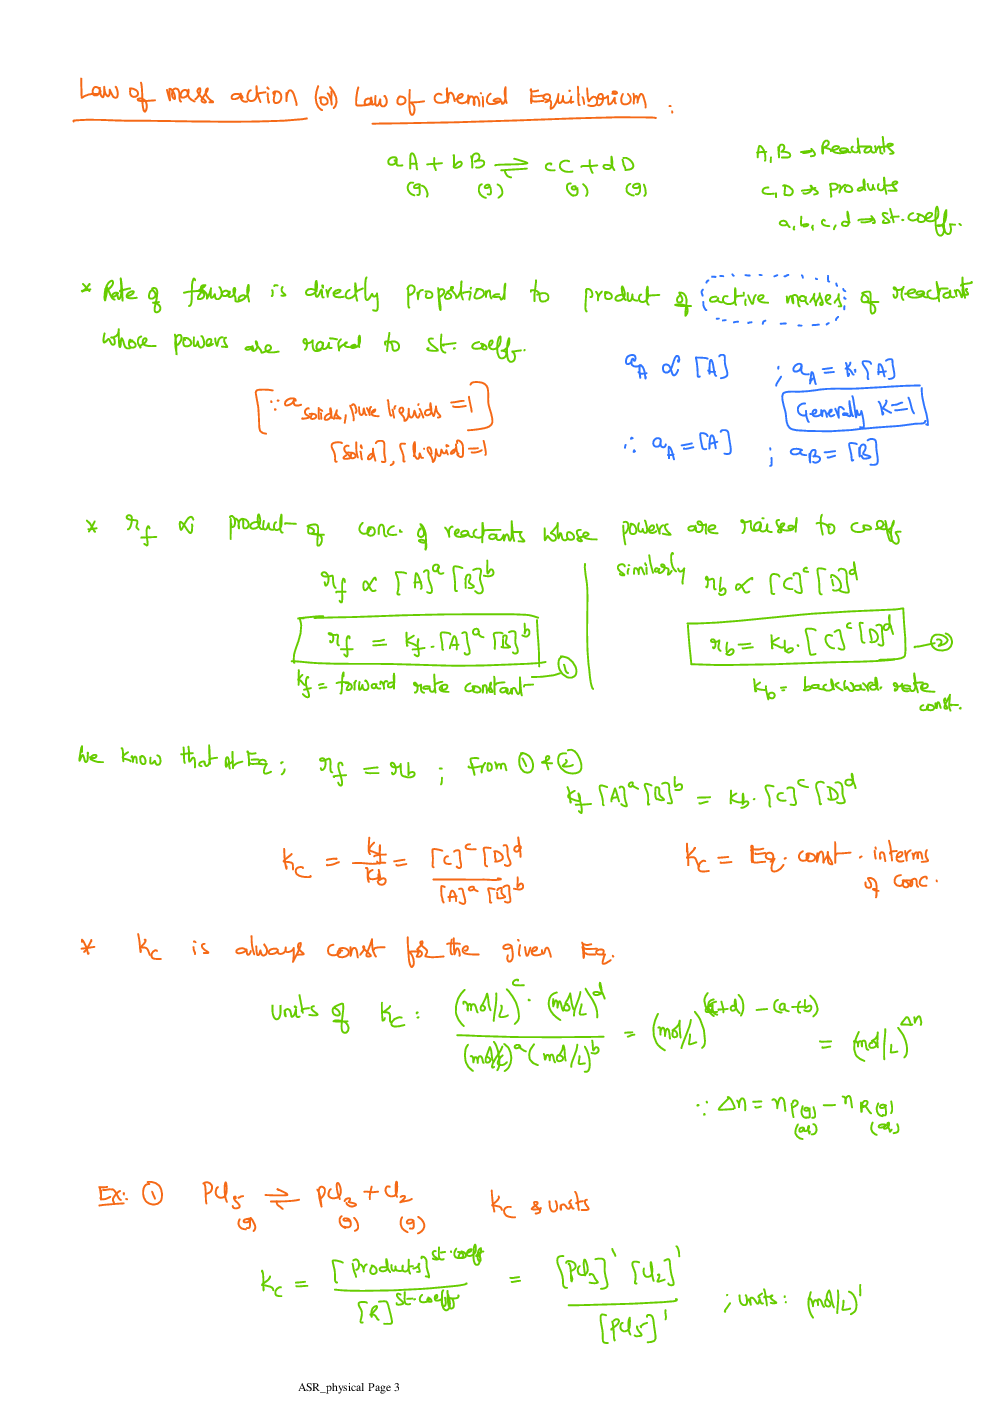 Law of mass action (or) Law of chemical Equilibrium :
aA + bB ⇌ cC + dD
(g) (g) (g) (g)
A, B → Reactants
C, D → products
a, b, c, d → st. coeff.
* Rate of forward is directly proportional to product of active masses of reactants
whose powers are raised to st. coeff.
a_A ∝ [A] ; a_A = K.[A]
Generally K=1
∴ a_A = [A] ; a_B = [B]
[∵ a solids, pure liquids = 1]
[solid], [liquid] = 1
* r_f ∝ product of conc. of reactants whose powers are raised to coeff
r_f ∝ [A]^a [B]^b
r_f = k_f . [A]^a [B]^b — ①
k_f = forward rate constant
similarly r_b ∝ [C]^c [D]^d
r_b = k_b . [C]^c [D]^d — ②
k_b = backward rate
const.
We know that at Eq ; r_f = r_b ; from ① & ②
k_f [A]^a [B]^b = k_b . [C]^c [D]^d
K_c = k_f/k_b = [C]^c [D]^d / [A]^a [B]^b
K_c = Eq. const. interms
of conc.
* K_c is always const for the given Eq.
units of K_c : (mol/L)^c . (mol/L)^d / (mol/L)^a (mol/L)^b = (mol/L)^(c+d) – (a+b) = (mol/L)^Δn
∵ Δn = n P(g) – n R(g)
(aq) (aq)
Ex: ① PCl5 ⇌ PCl3 + Cl2 K_c & units
(g) (g) (g)
K_c = [Products]^st.coeff / [R]^st.coeff = [PCl3]^1 [Cl2]^1 / [PCl5]^1 ; units : (mol/L)^1
ASR_physical Page 3